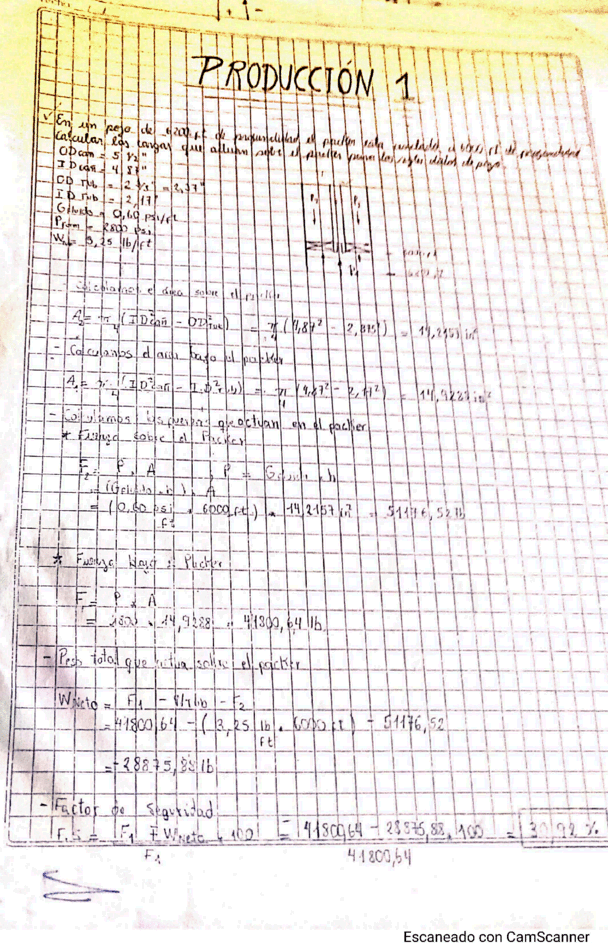 PRODUCCIÓN 1
✓ En un pozo de 6200 ft de profundidad el packer esta a 6000 ft de profundidad
Calcular las cargas que actuan sobre el packer para los datos de pozo.
OD cañ = 5 1/2"
ID cañ = 4,87"
OD Tub = 2 = 2,37"
ID Tub = 2,17"
Gfluido = 0,60 psi/ft
= 2800 psi
= 3,25 lb/ft
- Calculamos el área sobre el packer
A₂ = π/4 (ID²cañ - OD²tub) = π/4 (4,87² - 2,375²) = 14,2157 in²
- Calculamos el area bajo el packer
A₁ = π/4 (ID²cañ - ID²tub) = π/4 (4,87² - 2,17²) = 14,9288 in²
- Calculamos las fuerzas que actuan en el packer
* Fuerza sobre el Packer
F₂ = P x A ; P = Gfluido x h
= (Gfluido x h) x A
= (0,60 psi/ft x 6000 ft) x 14,2157 in² = 51176,52 lb
* Fuerza bajo el Packer
F₁ = P x A
= 2800 x 14,9288 = 41800,64 lb
- Peso total que actua sobre el packer
W Neto = F₁ - - F₂
= 41800,64 - (3,25 lb/ft x 6000 ft) - 51176,52
= -28875,88 lb
- Factor de Seguridad
F.S = F₁ + WNeto / F₁ x 100 = 41800,64 - 28875,88 / 41800,64 x 100 = 30,92 %
Escaneado con CamScanner